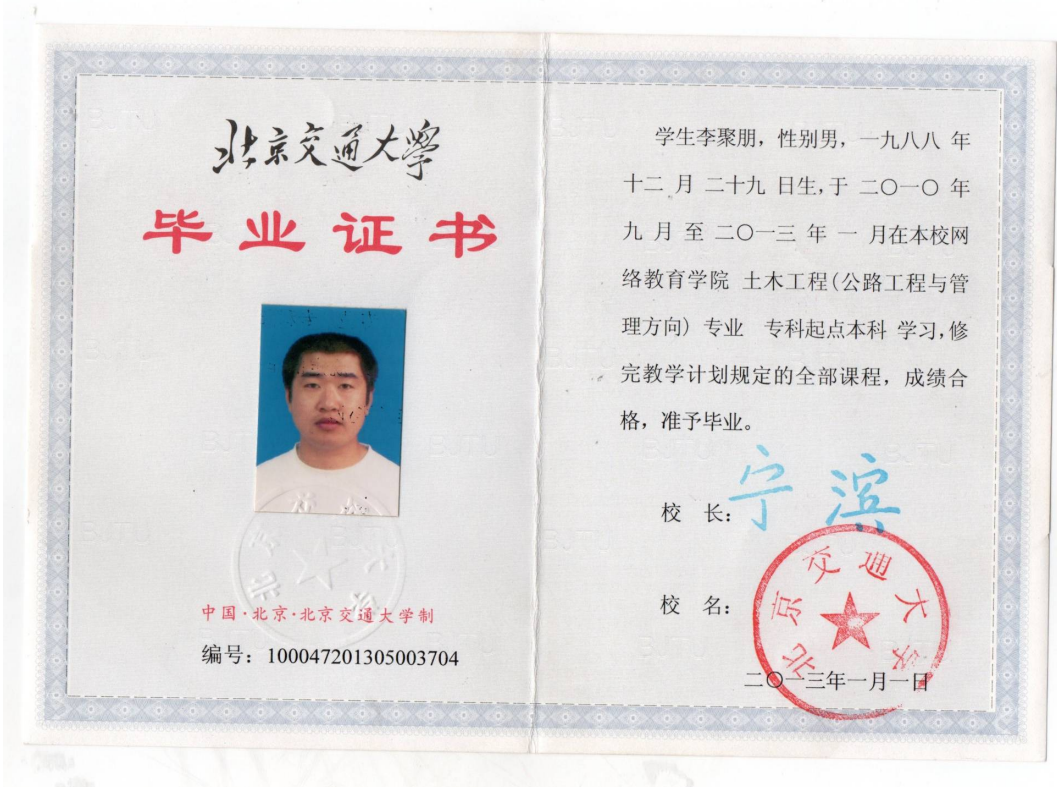 北京交通大學
毕业证书
中国·北京·北京交通大学制
编号：100047201305003704
学生李聚朋，性别男，一九八八 年
十二 月 二十九 日生，于 二〇一〇 年
九 月 至 二〇一三 年 一 月在本校网
络教育学院 土木工程(公路工程与管
理方向) 专业 专科起点本科 学习，修
完教学计划规定的全部课程，成绩合
格，准予毕业。
校 长：宁滨
校 名：
北京交通大学
二〇一三年一月一日
BJTU